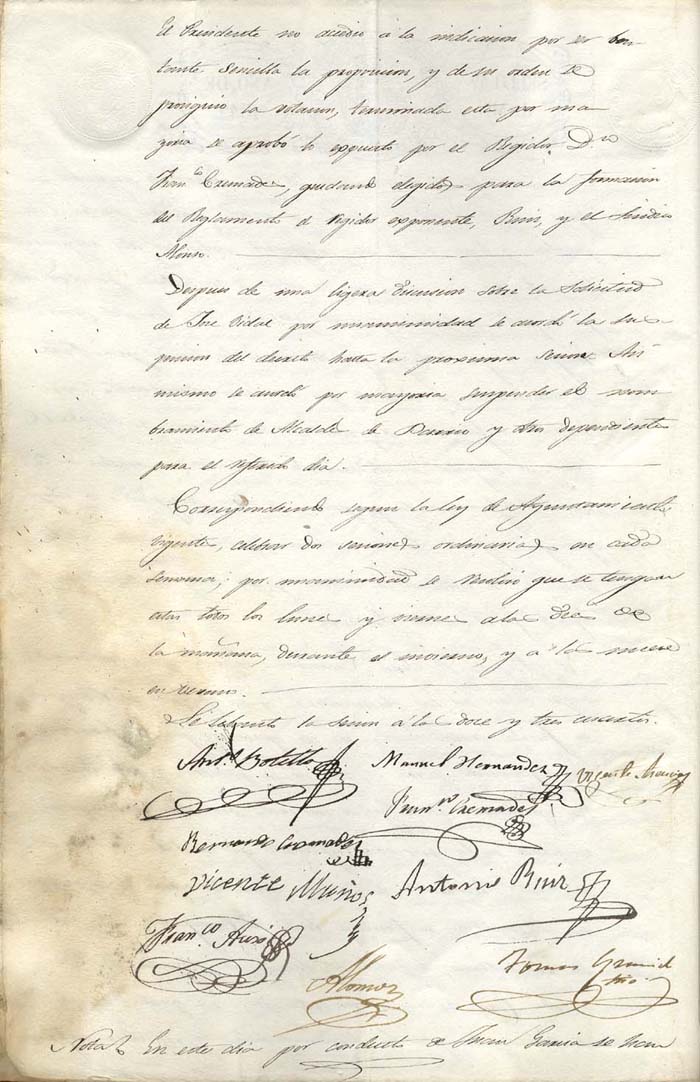 El Presidente no accedio á la indicacion por ser bas-
tante sencilla la proposicion, y de su orden se
prosiguio la votacion, terminada esta por ma-
yoria se aprobó lo expuesto por el Regidor Dn
Franco Cremades, quedando elegidos para la formacion
del Reglamento el Regidor exponente, Ruiz, y el Sindico
Alonso.
Despues de una ligera discusion sobre la Solicitud
de José Vidal por unanimidad se acordó la sus-
pension del decreto hasta la proxima sesion. Asi
mismo se acordó por mayoria suspender el nom-
bramiento de Alcalde de Barrio y otros dependientes
para el referido dia.
Correspondiendo segun la ley de Ayuntamientos
vigente, celebrar dos sesiones ordinarias en cada
semana; por unanimidad se resolvió que se tengan
estas todos los lunes y jueves a las diez de
la mañana, durante el invierno, y á las nueve
en verano.
Se levantó la sesion á las doce y tres cuartos.
Anto Botella Manuel Hernandez Vicente
Franco Cremades
Bernardo Cremades
Vicente Muños Antonio Ruiz
Franco
Alonso Tomas
Nota En este dia por conducto de Juan Garcia se